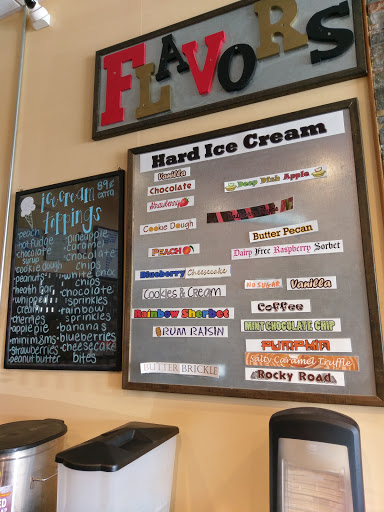 FLAVORS
Hard Ice Cream
Vanilla
Chocolate
Strawberry
Cookie Dough
PEACH
Blueberry Cheesecake
Cookies & Cream
Rainbow Sherbot
RUM RAISIN
BUTTER BRICKLE
Deep Dish Apple
Butter Pecan
Dairy Free Raspberry Sorbet
NO SUGAR Vanilla
Coffee
MINT CHOCOLATE CHIP
PUMPKIN
Salty Caramel Truffle
Rocky Road
ice cream
toppings
89¢
extra
peach
hot fudge
chocolate
syrup
cookie dough
peanuts
heath bar
whipped
cream
cherries
apple pie
m&m minis
strawberries
peanut butter
pineapple
caramel
chocolate
chips
white choc
chips
chocolate
sprinkles
rainbow
sprinkles
bananas
blueberries
cheesecake
bites